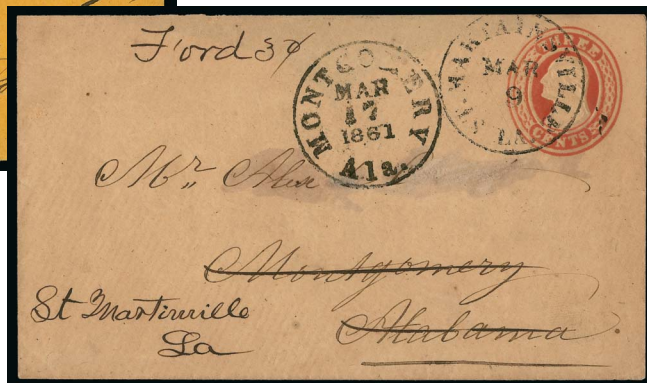 Ford 3¢
MONTGOMERY
MAR
17
1861
Ala.
ST. MARTAINSVILLE
MAR
9
LA
THREE
CENTS
Mr. Alex
Montgomery
Alabama
St Martinville
La